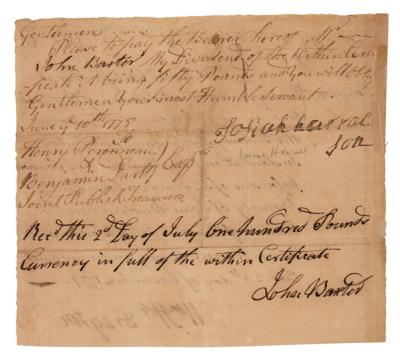 Gentlemen
Please to pay the Bearer hereof Mr
John Baxter My Dividend of the within Certi
ficate it being fifty Pounds and you will obly
Gentlemen your most Humble Servant
June 10th 1775
Josiah
son
Henry Peronneau
Benjamin Esqrs
Joint Publick Treasurers
Recd this 2d Day of July One hundred Pounds
Currency in full of the within Certificate
John Baxter